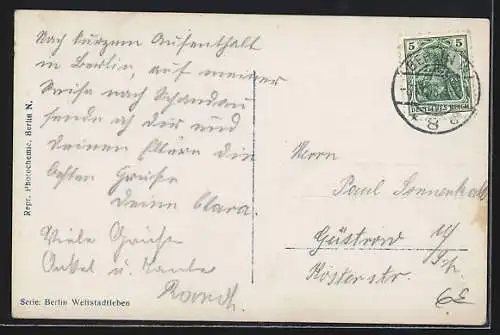 Nach kurzem Aufenthalt
in Berlin, auf meiner
Reise nach Schandau
sende ich dir und
deinen Eltern die
besten Grüße
deine Clara.
Viele Grüße
Onkel u. Tante
Herrn
Paul
Güstrow
Klosterstr.
5 5
DEUTSCHES REICH
BERLIN
8
Repr. Photochemie. Berlin N.
Serie: Berlin Weltstadtleben